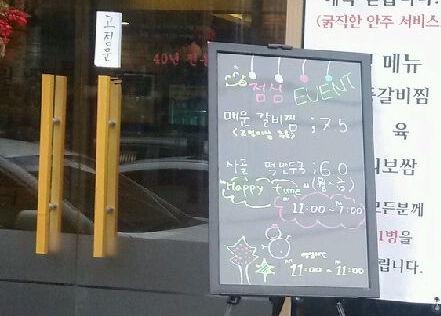 고정문
40년 전
점심 EVENT
매운 갈비찜 ; 7.5
사골 떡만두국 ; 6.0
Happy Time (월~금)
11:00 ~ 7:00
영업시간
AM 11:00 ~ PM 11:00
(굵직한 안주 서비스
메뉴
갈비찜
육
보쌈
모든분께
1병을
립니다.